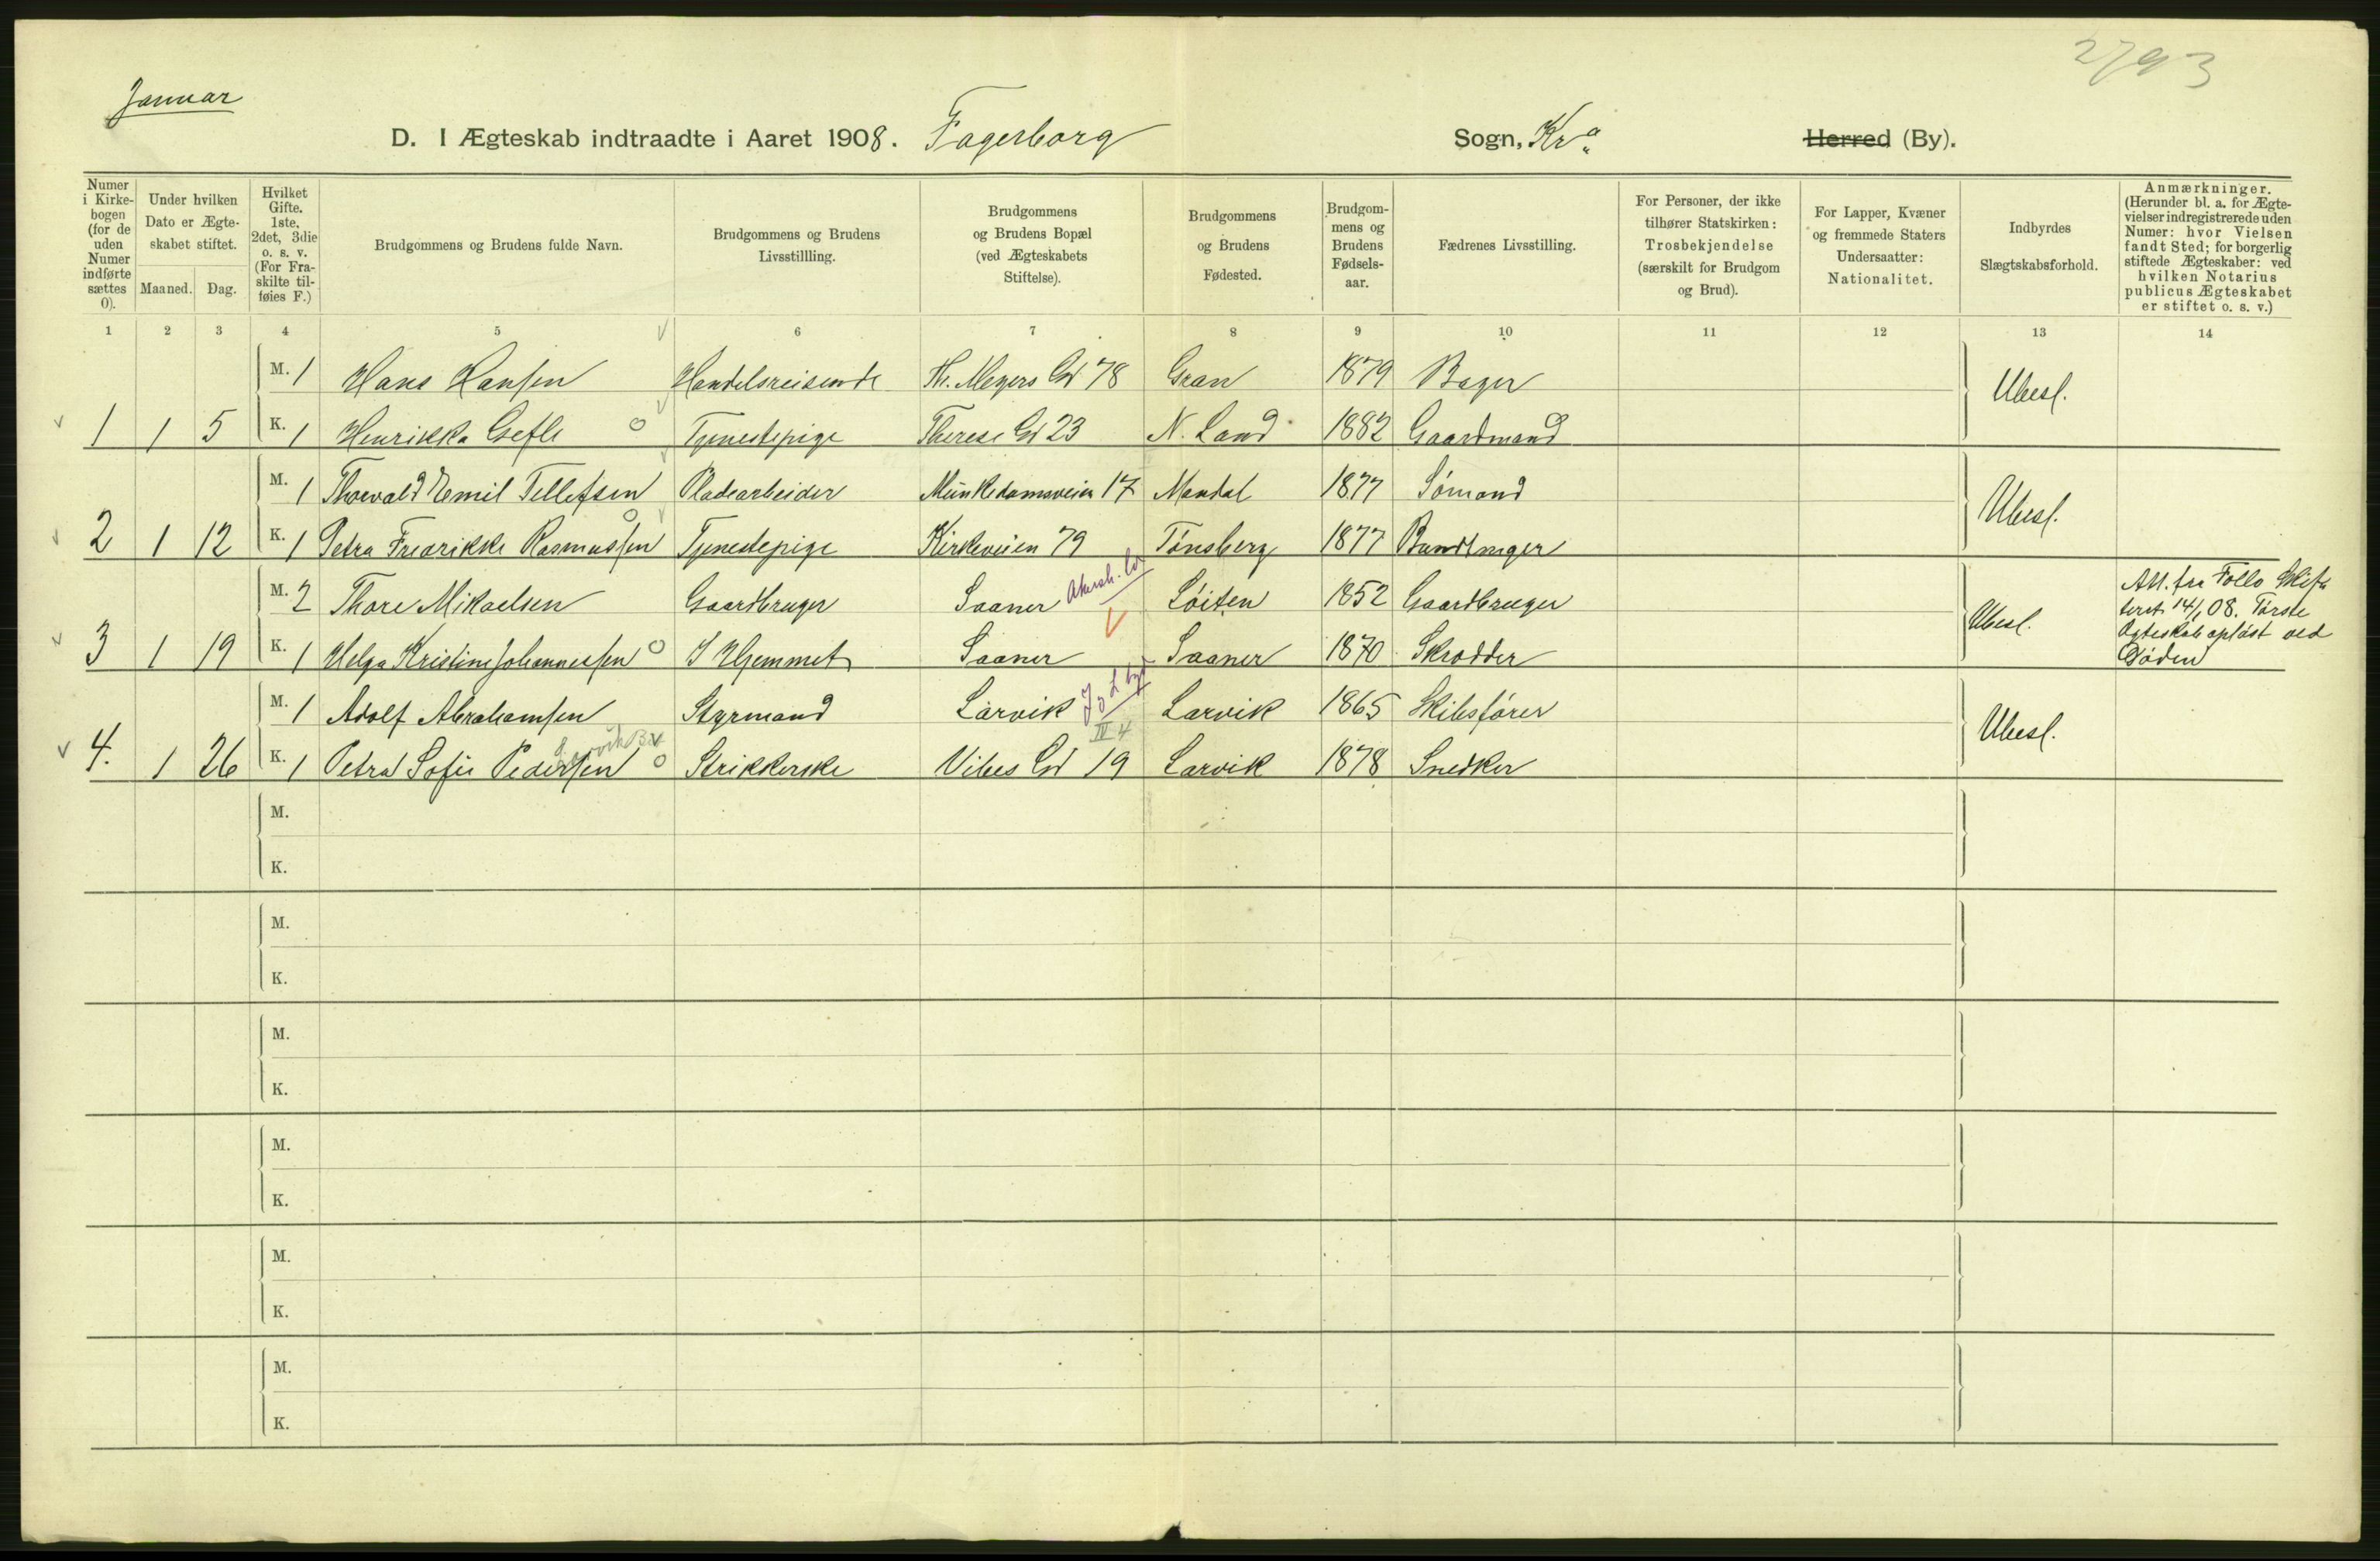 2793
Januar
D. I Ægteskab indtraadte i Aaret 1908. Fagerborg Sogn, Kr.a Herred (By).
Numer i Kirke-bogen (for de uden Numer indførte sættes 0).
Under hvilken Dato er Ægte-skabet stiftet.
Maaned. Dag.
Hvilket Gifte. 1ste, 2det, 3die o. s. v. (For Fra-skilte til-føies F.)
Brudgommens og Brudens fulde Navn.
Brudgommens og Brudens Livsstillling.
Brudgommens og Brudens Bopæl (ved Ægteskabets Stiftelse).
Brudgommens og Brudens Fødested.
Brudgom-mens og Brudens Fødsels-aar.
Fædrenes Livsstilling.
For Personer, der ikke tilhører Statskirken: Trosbekjendelse (særskilt for Brudgom og Brud).
For Lapper, Kvæner og fremmede Staters Undersaatter: Nationalitet.
Indbyrdes Slægtskabsforhold.
Anmærkninger. (Herunder bl. a. for Ægte-vielser indregistrerede uden Numer: hvor Vielsen fandt Sted; for borgerlig stiftede Ægteskaber: ved hvilken Notarius publicus Ægteskabet er stiftet o. s. v.)
1 2 3 4 5 6 7 8 9 10 11 12 13 14
M. 1 Hans Hansen Handelsreisende Th. Meyers Gd 78 Gran 1879 Bager Ubesl.
1 1 5 K. 1 Henrikka Gefle Tjenestepige Therese Gd 23 N. Land 1882 Gaardmand
M. 1 Thorvald Emil Tellefsen Pladearbeider Munkedamsveien 17 Mandal 1877 Sømand Ubesl.
2 1 12 K. 1 Petra Fredrikke Rasmussen Tjenestepige Kirkeveien 79 Tønsberg 1877
M. 2 Thore Mikaelsen Gaardbruger Saaner Akersh. Løiten 1852 Gaardbruger Ubesl.
Att. fra Follo Skifte
teret 14/1 08. Første
Ægteskab opløst ved
Døden
3 1 19 K. 1 Helga Kristine Johannessen I Hjemmet Saaner Saaner 1870 Skrædder
M. 1 Adolf Abrahamsen Styrmand Larvik Larvik 1865 Skibsfører Ubesl.
IV 4
4. 1 26 K. 1 Petra Sofie Pedersen Strikkerske Vibes Gd 19 Larvik 1878 Snedker
M.
K.
M.
K.
M.
K.
M.
K.
M.
K.
M.
K.